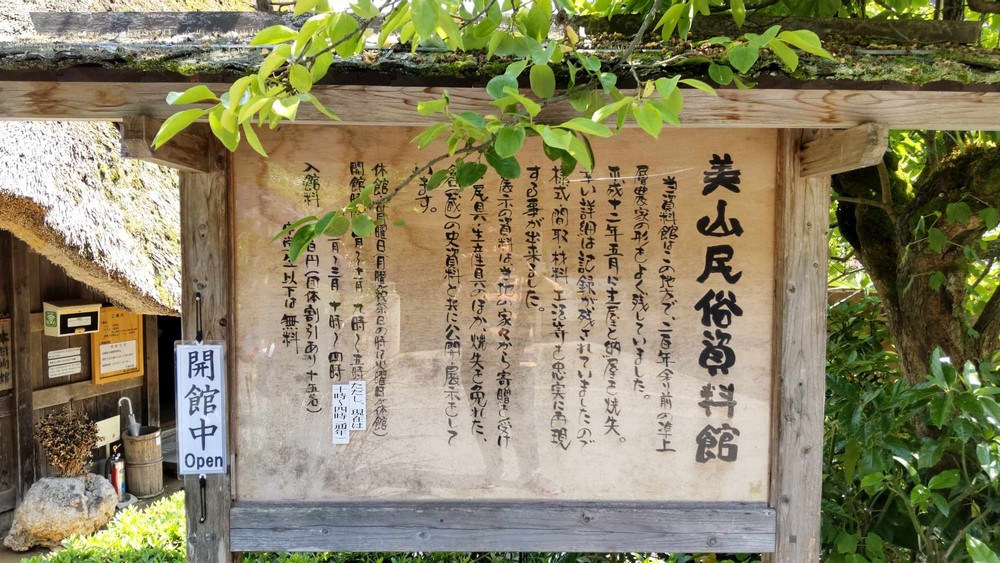 美山民俗資料館
当資料館はこの地方で、二百年余り前の準上
層農家の形をよく残していました。
平成十二年五月に主屋と納屋を焼失。
い詳細は記録が残されていましたので
様式 間取 材料 工法等を忠実に再現
する事が出来ました。
展示の資料は美山の家々から寄贈を受け
民具や生産具のほか、焼失を免れた、
倉(蔵)の史資料と共に公開 展示をして
います。
休館 月曜日(月曜が祝祭日の時は火曜日が休館)
開館 九時〜五時
三月 十時〜四時
ただし、現在は
十時〜四時 通年
入館料
円(団体割引あり 十五名)
中学生以下は 無料
開館中
Open